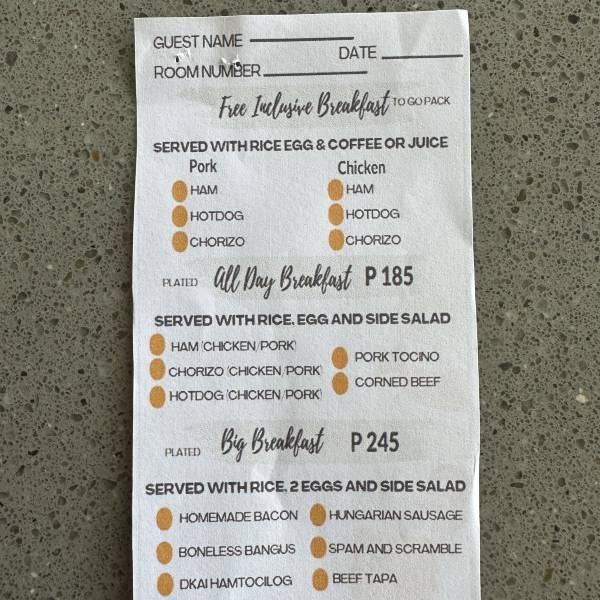 GUEST NAME
DATE
ROOM NUMBER
Free Inclusive Breakfast TO GO PACK
SERVED WITH RICE EGG & COFFEE OR JUICE
Pork Chicken
HAM HAM
HOTDOG HOTDOG
CHORIZO CHORIZO
PLATED All Day Breakfast P 185
SERVED WITH RICE, EGG AND SIDE SALAD
HAM (CHICKEN/PORK)
PORK TOCINO
CHORIZO (CHICKEN/PORK)
CORNED BEEF
HOTDOG (CHICKEN/PORK)
PLATED Big Breakfast P 245
SERVED WITH RICE, 2 EGGS AND SIDE SALAD
HOMEMADE BACON HUNGARIAN SAUSAGE
BONELESS BANGUS SPAM AND SCRAMBLE
DKAI HAMTOCILOG BEEF TAPA